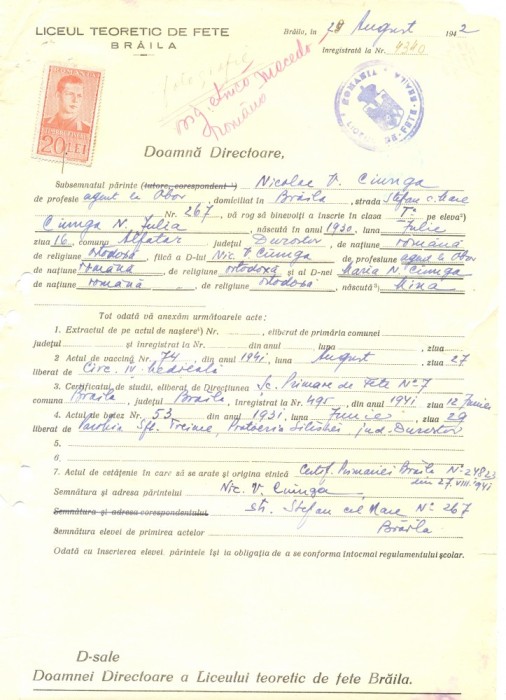 LICEUL TEORETIC DE FETE
BRĂILA
Brăila, în 29 August 1942
înregistrată la Nr. 9340
orig. etnică Macedo
Română
ROMANIA
20 LEI
ROMANIA
LICEUL DE FETE BRĂILA
Doamnă Directoare,
Subsemnatul părinte (tutore, corespondent¹) Nicolae V. Ciunga
de profesie agent la Obor, domiciliat în Brăila, strada Stefan c. Mare
Nr. 267, vă rog să binevoiți a înscrie în clasa I-a pe eleva²)
Ciunga N. Iulia, născută în anul 1930, luna Iulie
ziua 16 comuna Alfatar județul Durostor, de națiune română
de religiune ortodoxă, fiică a D-lui Nic. V. Ciunga, de profesiune agent la Obor
de națiune română, de religiune ortodoxă și al D-nei Maria N. Ciunga
de națiune română, de religiune ortodoxă, născută³) Mina
Tot odată vă anexăm următoarele acte:
1. Extractul de pe actul de naștere⁴) Nr. , eliberat de primăria comunei
județul și înregistrat la Nr. din anul , luna , ziua
2 Actul de vaccină Nr. 74 din anul 1941, luna August, ziua 27
liberat de Circ. IV. Medicală
3. Certificatul de studii, eliberat de Direcțiunea Șc. Primare de Fete No 7
comuna Brăila, județul Brăila, înregistrat la Nr. 495, din anul 1941 ziua 12 Iunie
4. Actul de botez Nr. 53, din anul 1931, luna Iunie, ziua 29
liberat de Parohia Sft. Treime, Protoeria Silistrei jud. Durostor
5.
6.
7. Actul de cetățenie în care să se arate și origina etnică Certif. Primariei Brăila No 24823
din 27.VIII.1941
Semnătura și adresa părintelui Nic. V. Ciunga
Semnătura și adresa corespondentului str. Stefan cel Mare No 267
Semnătura elevei de primirea actelor Brăila
Odată cu înscrierea elevei, părintele își ia obligația de a se conforma întocmai regulamentului școlar.
D-sale
Doamnei Directoare a Liceului teoretic de fete Brăila.